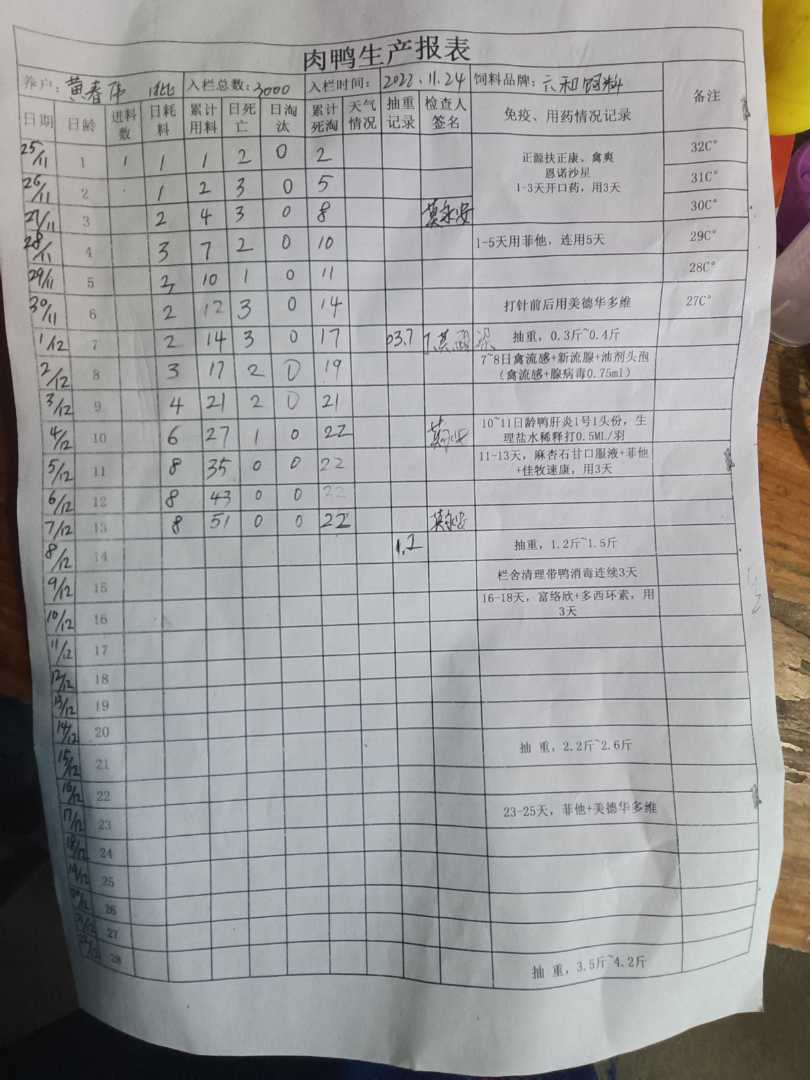 肉鸭生产报表
养户: 黄春 1批 入栏总数: 3000 入栏时间: 2022.11.24 饲料品牌: 六和饲料 备注
日期 日龄 进料数 日耗料 累计用料 日死亡 日淘汰 累计死淘 天气情况 抽重记录 检查人签名 免疫、用药情况记录
25/11 1 1 1 1 2 0 2 32C°
正源扶正康、禽爽
恩诺沙星
1-3天开口药，用3天
26/11 2 1 2 3 0 5 31C°
27/11 3 2 4 3 0 8 30C°
28/11 4 3 7 2 0 10 1-5天用菲他，连用5天 29C°
29/11 5 3 10 1 0 11 28C°
30/11 6 2 12 3 0 14 打针前后用美德华多维 27C°
1/12 7 2 14 3 0 17 03.7 抽重，0.3斤~0.4斤
2/12 8 3 17 2 0 19 7~8日禽流感+新流腺+油剂头孢
（禽流感+腺病毒0.75ml）
3/12 9 4 21 2 0 21
4/12 10 6 27 1 0 22 10~11日龄鸭肝炎1号1头份，生
理盐水稀释打0.5ML/羽
5/12 11 8 35 0 0 22 11-13天，麻杏石甘口服液+菲他
+佳牧速康，用3天
6/12 12 8 43 0 0 22
7/12 13 8 51 0 0 22
8/12 14 1.2 抽重，1.2斤~1.5斤
9/12 15 栏舍清理带鸭消毒连续3天
10/12 16 16-18天，富络欣+多西环素，用
3天
11/12 17
12/12 18
13/12 19
14/12 20
15/12 21 抽 重，2.2斤~2.6斤
16/12 22
17/12 23 23-25天，菲他+美德华多维
18/12 24
19/12 25
26
27
28 抽 重，3.5斤~4.2斤